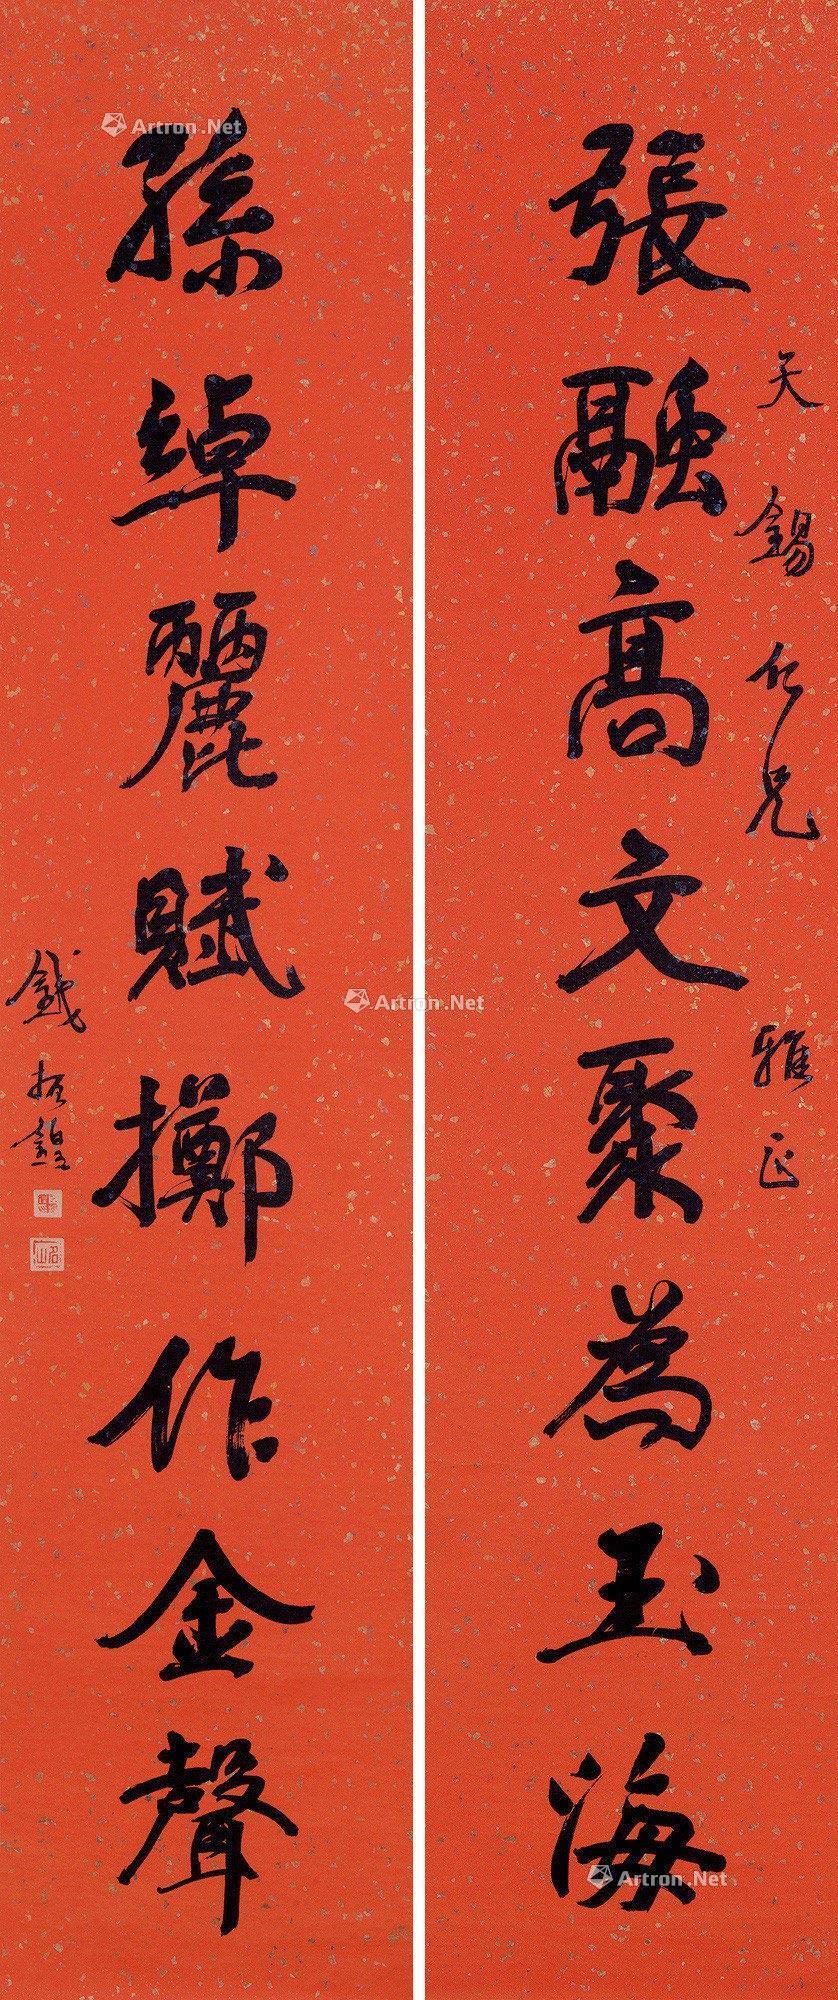 張融高文聚為玉海
天錫仁兄 雅正
孫綽麗賦擲作金聲
錢振鍠
名山
Artron.Net
Artron.Net
Artron.Net